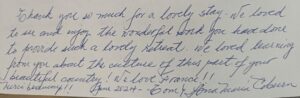 Thank you so much for a lovely stay. We loved
to see and enjoy the wonderful work you have done
to provide such a lovely retreat. We loved learning
from you about the culture of this part of your
beautiful country! We love France!!!
merci beaucoup!! June 2024 - Tom & Anna Marie